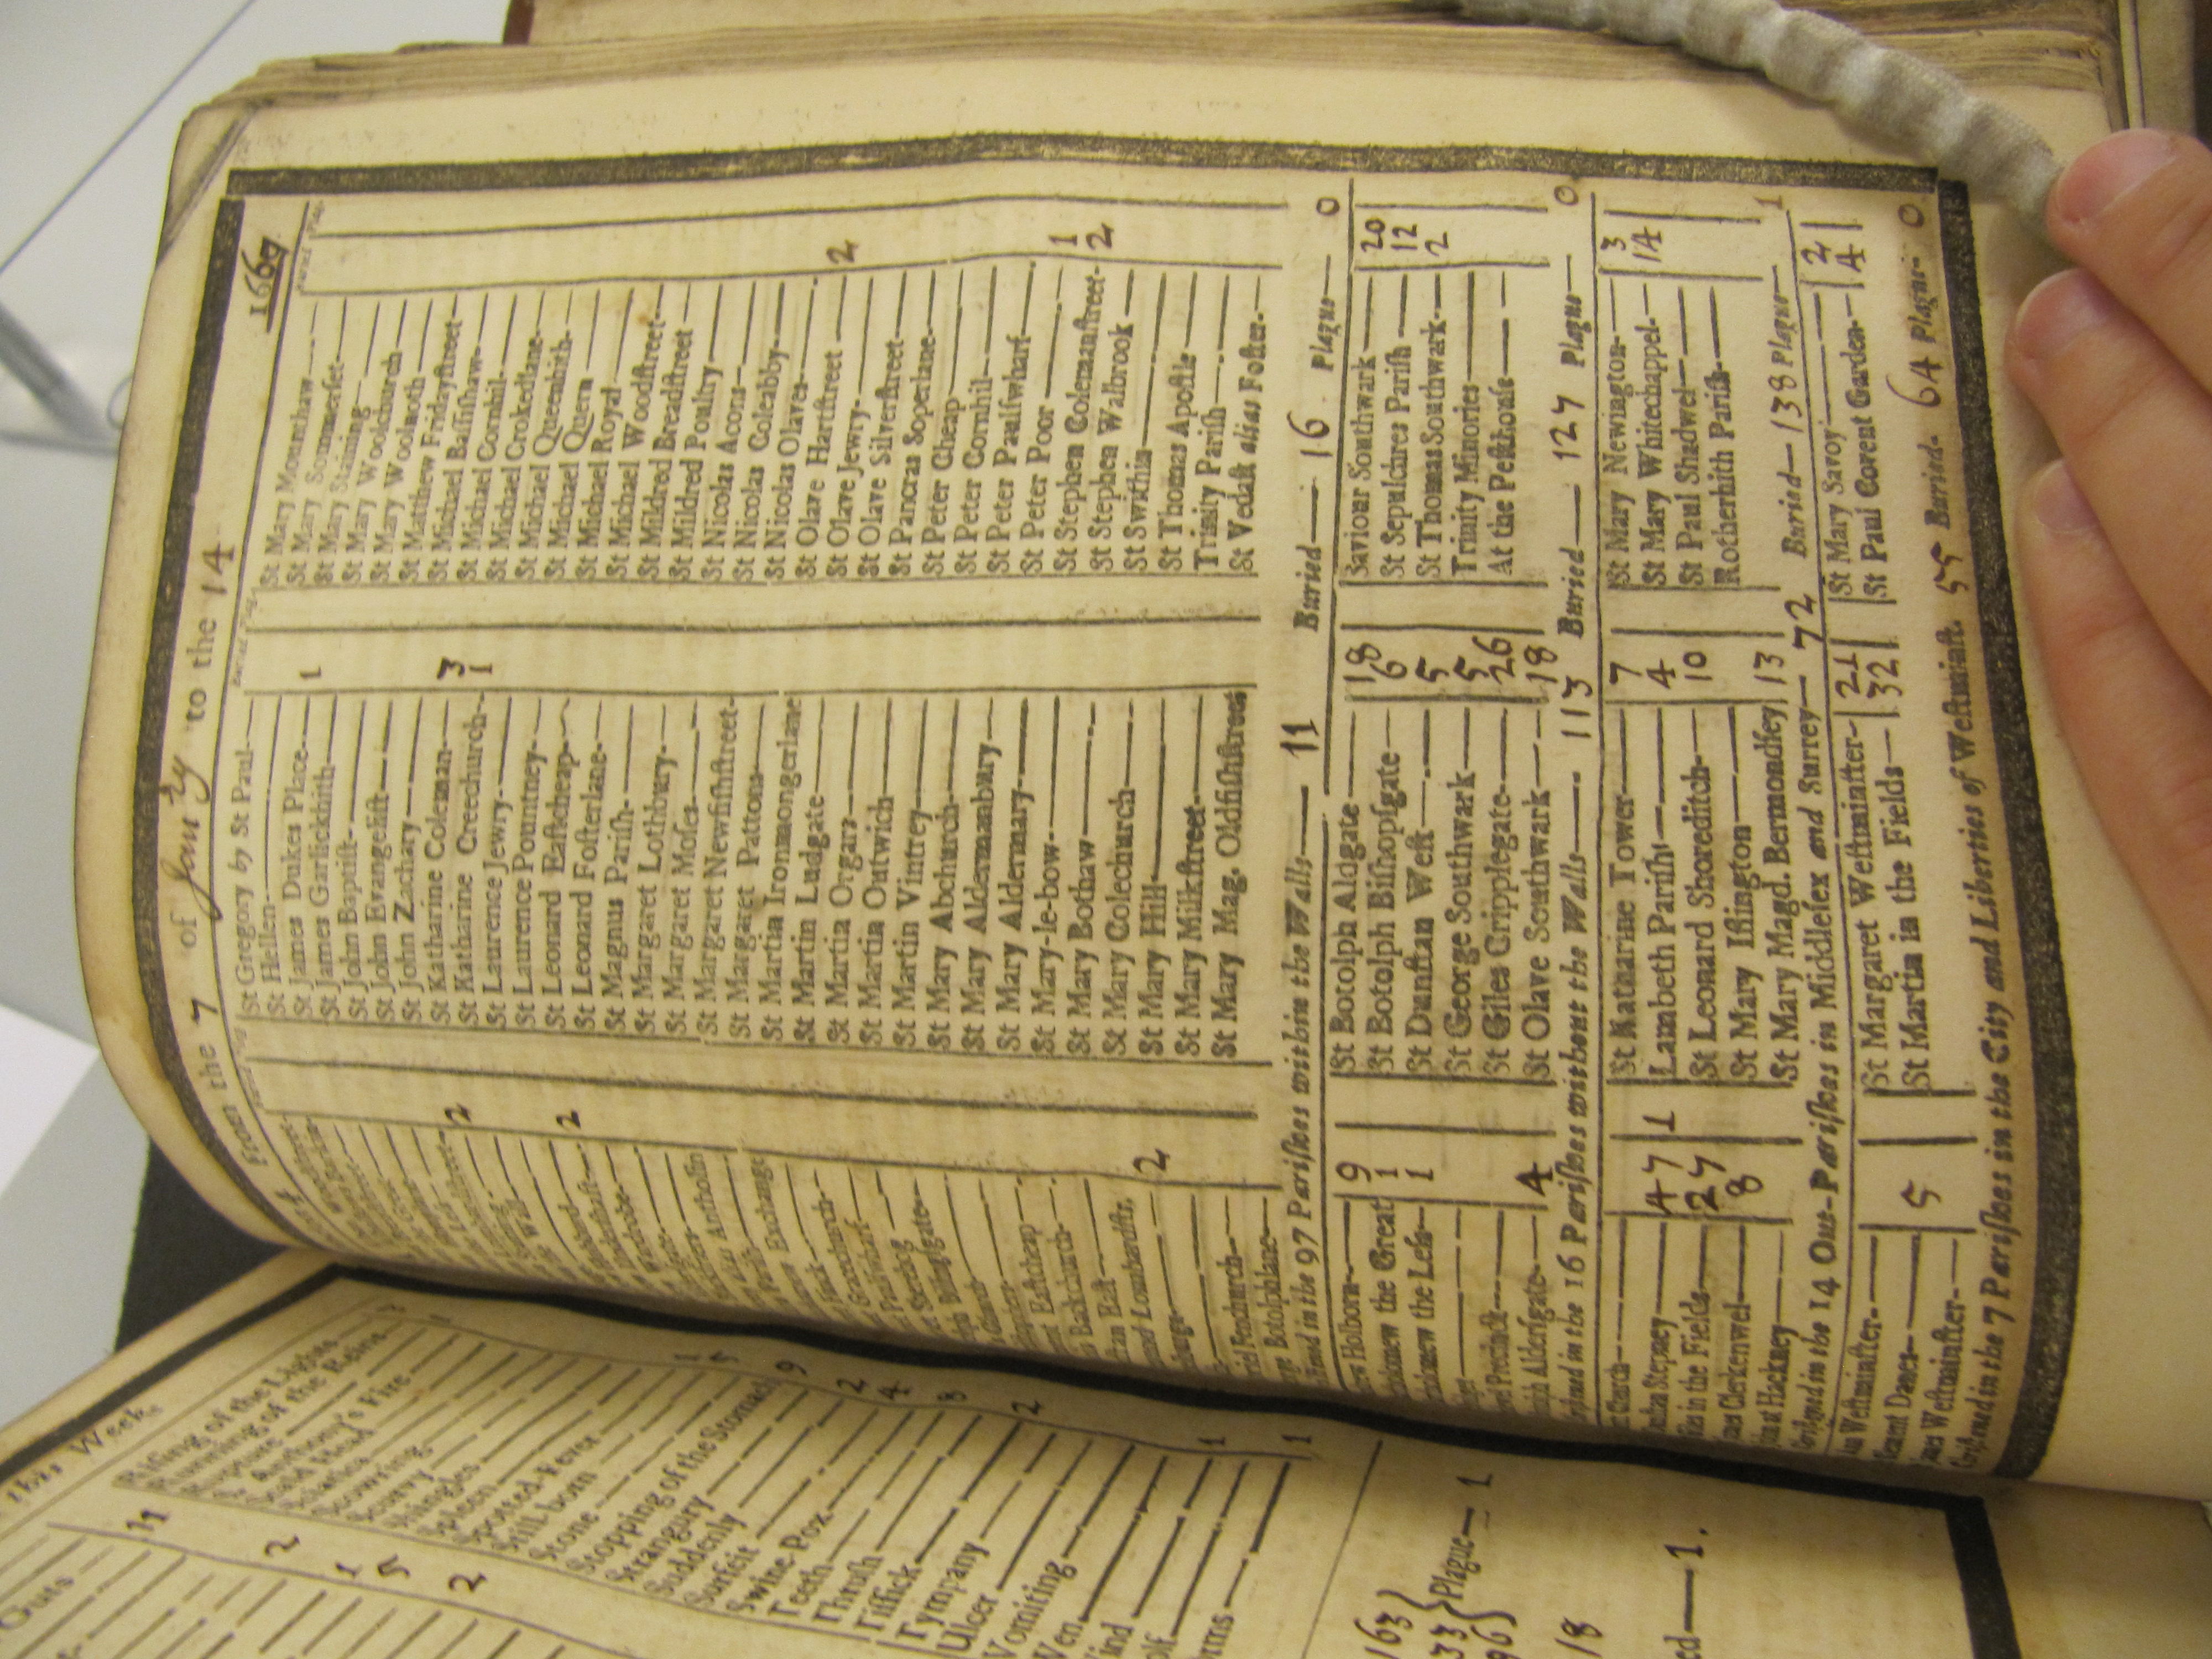 From the 7 of Janry to the 14
1667
St Gregory by St Paul
St Hellen
St James Dukes Place 1
St James Garlickhith
St John Baptist
St John Evangelist
St John Zachary
St Katharine Coleman 3
St Katharine Creechurch 1
St Laurence Jewry
St Laurence Pountney
St Leonard Eastcheap
St Leonard Fosterlane
St Magnus Parish
St Margaret Lothbury
St Margaret Moses
St Margaret Newfishstreet
St Margaret Pattons
St Martin Ironmongerlane
St Martin Ludgate
St Martin Orgars
St Martin Outwich
St Martin Vintrey
St Mary Abchurch
St Mary Aldermanbury
St Mary Aldermary
St Mary-le-bow
St Mary Bothaw
St Mary Colechurch
St Mary Hill
St Mary Milkstreet
St Mary Mag. Oldfishstreet
St Mary Mounthaw
St Mary Sommerset
St Mary Staining
St Mary Woolchurch
St Mary Woolnoth
St Matthew Fridaystreet
St Michael Bassishaw
St Michael Cornhil
St Michael Crokedlane
St Michael Queenhith
St Michael Quern
St Michael Royal
St Michael Woodstreet
St Mildred Breadstreet
St Mildred Poultry
St Nicolas Acons
St Nicolas Coleabby
St Nicolas Olaves
St Olave Hartstreet
St Olave Jewry 2
St Olave Silverstreet
St Pancras Soperlane
St Peter Cheap
St Peter Cornhil
St Peter Paulswharf
St Peter Poor
St Stephen Colemanstreet 1
St Stephen Walbrook 2
St Swithin
St Thomas Apostle
Trinity Parish
St Vedast alias Foster
in the 97 Parishes within the Walls 11 Buried 16 Plague 0
Holborn 9
the Great 1
the Less 1
Precinct
Aldersgate 4
St Botolph Aldgate 18
St Botolph Bishopsgate 6
St Dunstan West 5
St George Southwark 5
St Giles Cripplegate 26
St Olave Southwark 18
Saviour Southwark 20
St Sepulchres Parish 12
St Thomas Southwark 2
Trinity Minories
At the Pesthouse
in the 16 Parishes without the Walls 113 Buried 127 Plague 0
Church
Stepney 47 1
in the Fields 27
Clerkenwel 8
at Hackney
St Katharine Tower 7
Lambeth Parish 4
St Leonard Shoreditch 10
St Mary Islington
St Mary Magd. Bermondsey 13
St Mary Newington 3
St Mary Whitechappel 14
St Paul Shadwel
Rotherhith Parish
in the 14 Out-Parishes in Middlesex and Surrey 72 Buried 138 Plague 1
Westminster
Danes 5
Westminster
St Margaret Westminster 21
St Martin in the Fields 32
St Mary Savoy 2
St Paul Covent Garden 4
in the 7 Parishes in the City and Liberties of Westminst. 55 Buried 64 Plague 0
this Week
Guts
11
2
1
5
2
Rising of the Lights
Running of the Reins
Rupture
St Anthony's Fire
Scald Head
Sciatica
Scowring
Scurvy
Shingles
Spleen
Spotted-Fever
Still born
Stone
Stopping of the Stomach 9
Strangury
Suddenly
Surfeit
Swine-Pox
Teeth
Thrush
Tissick
Tympany
Ulcer
Vomiting
Wen
163
Plague 1
18
1.